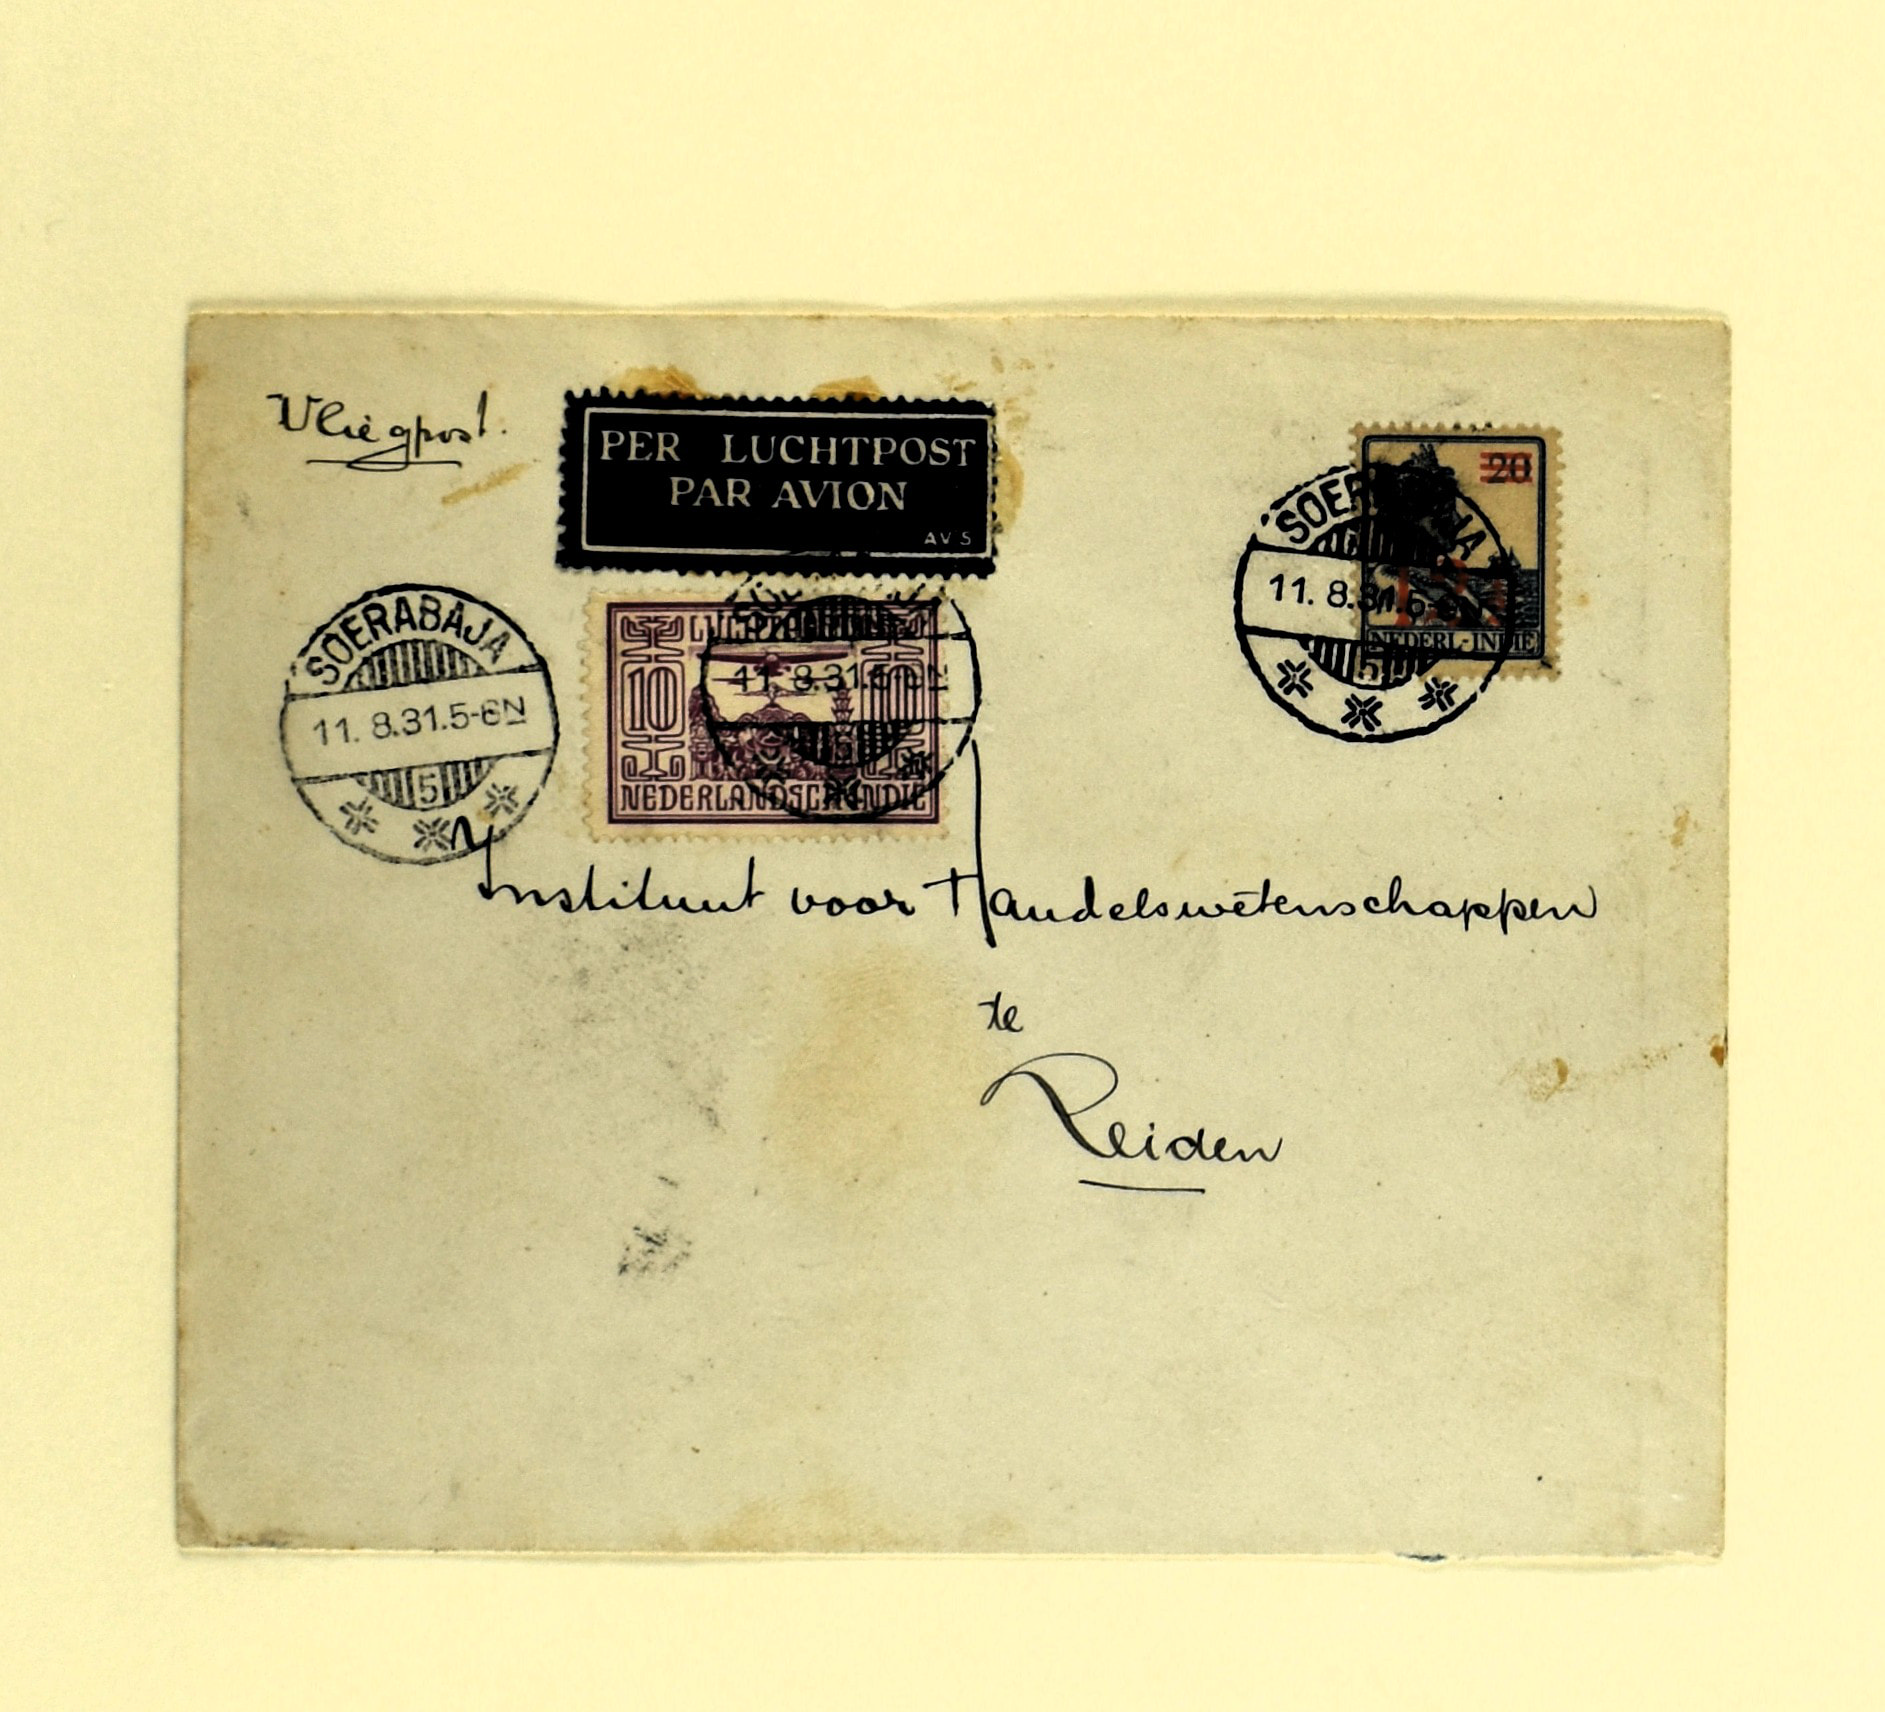 Vliegpost.
PER LUCHTPOST
PAR AVION
AVS
20
SOERABAJA
11. 8.31.5-6N
5
NEDERL-INDIE
SOERABAJA
11. 8.31.5-6N
5
LUCHTPOST
10 10
11. 8.31.5-6N
5
NEDERLANDSCH INDIE
Instituut voor Handelswetenschappen
te
Leiden